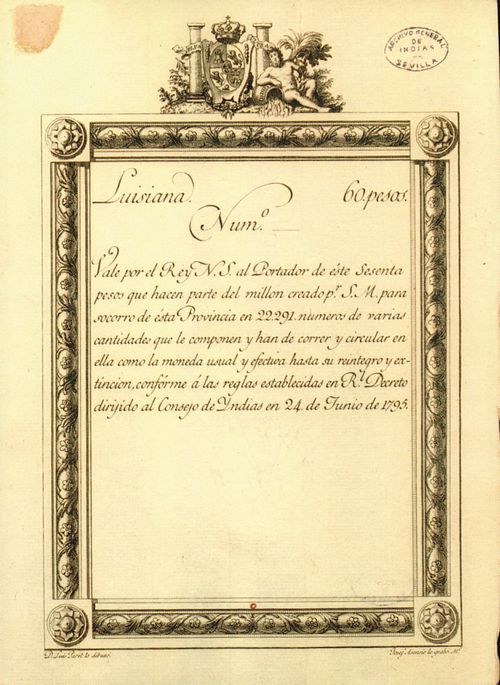 ARCHIVO GENERAL
DE
INDIAS
SEVILLA
Luisiana. 60. pesos.
Num.º
Vale por el Rey N. S. al Portador de éste Sesenta
pesos que hacen parte del millon creado p.r S. M. para
socorro de ésta Provincia en 22.291. numeros de varias
cantidades que le componen y han de correr y circular en
ella como la moneda usual y efectiva hasta su reintegro y ex-
tincion, conforme á las reglas establecidas en R.l Decreto
dirijido al Consejo de Yndias en 24. de Junio de 1795.
D. Luis Paret lo dibuxo.
Josef Asensio lo grabó M.d